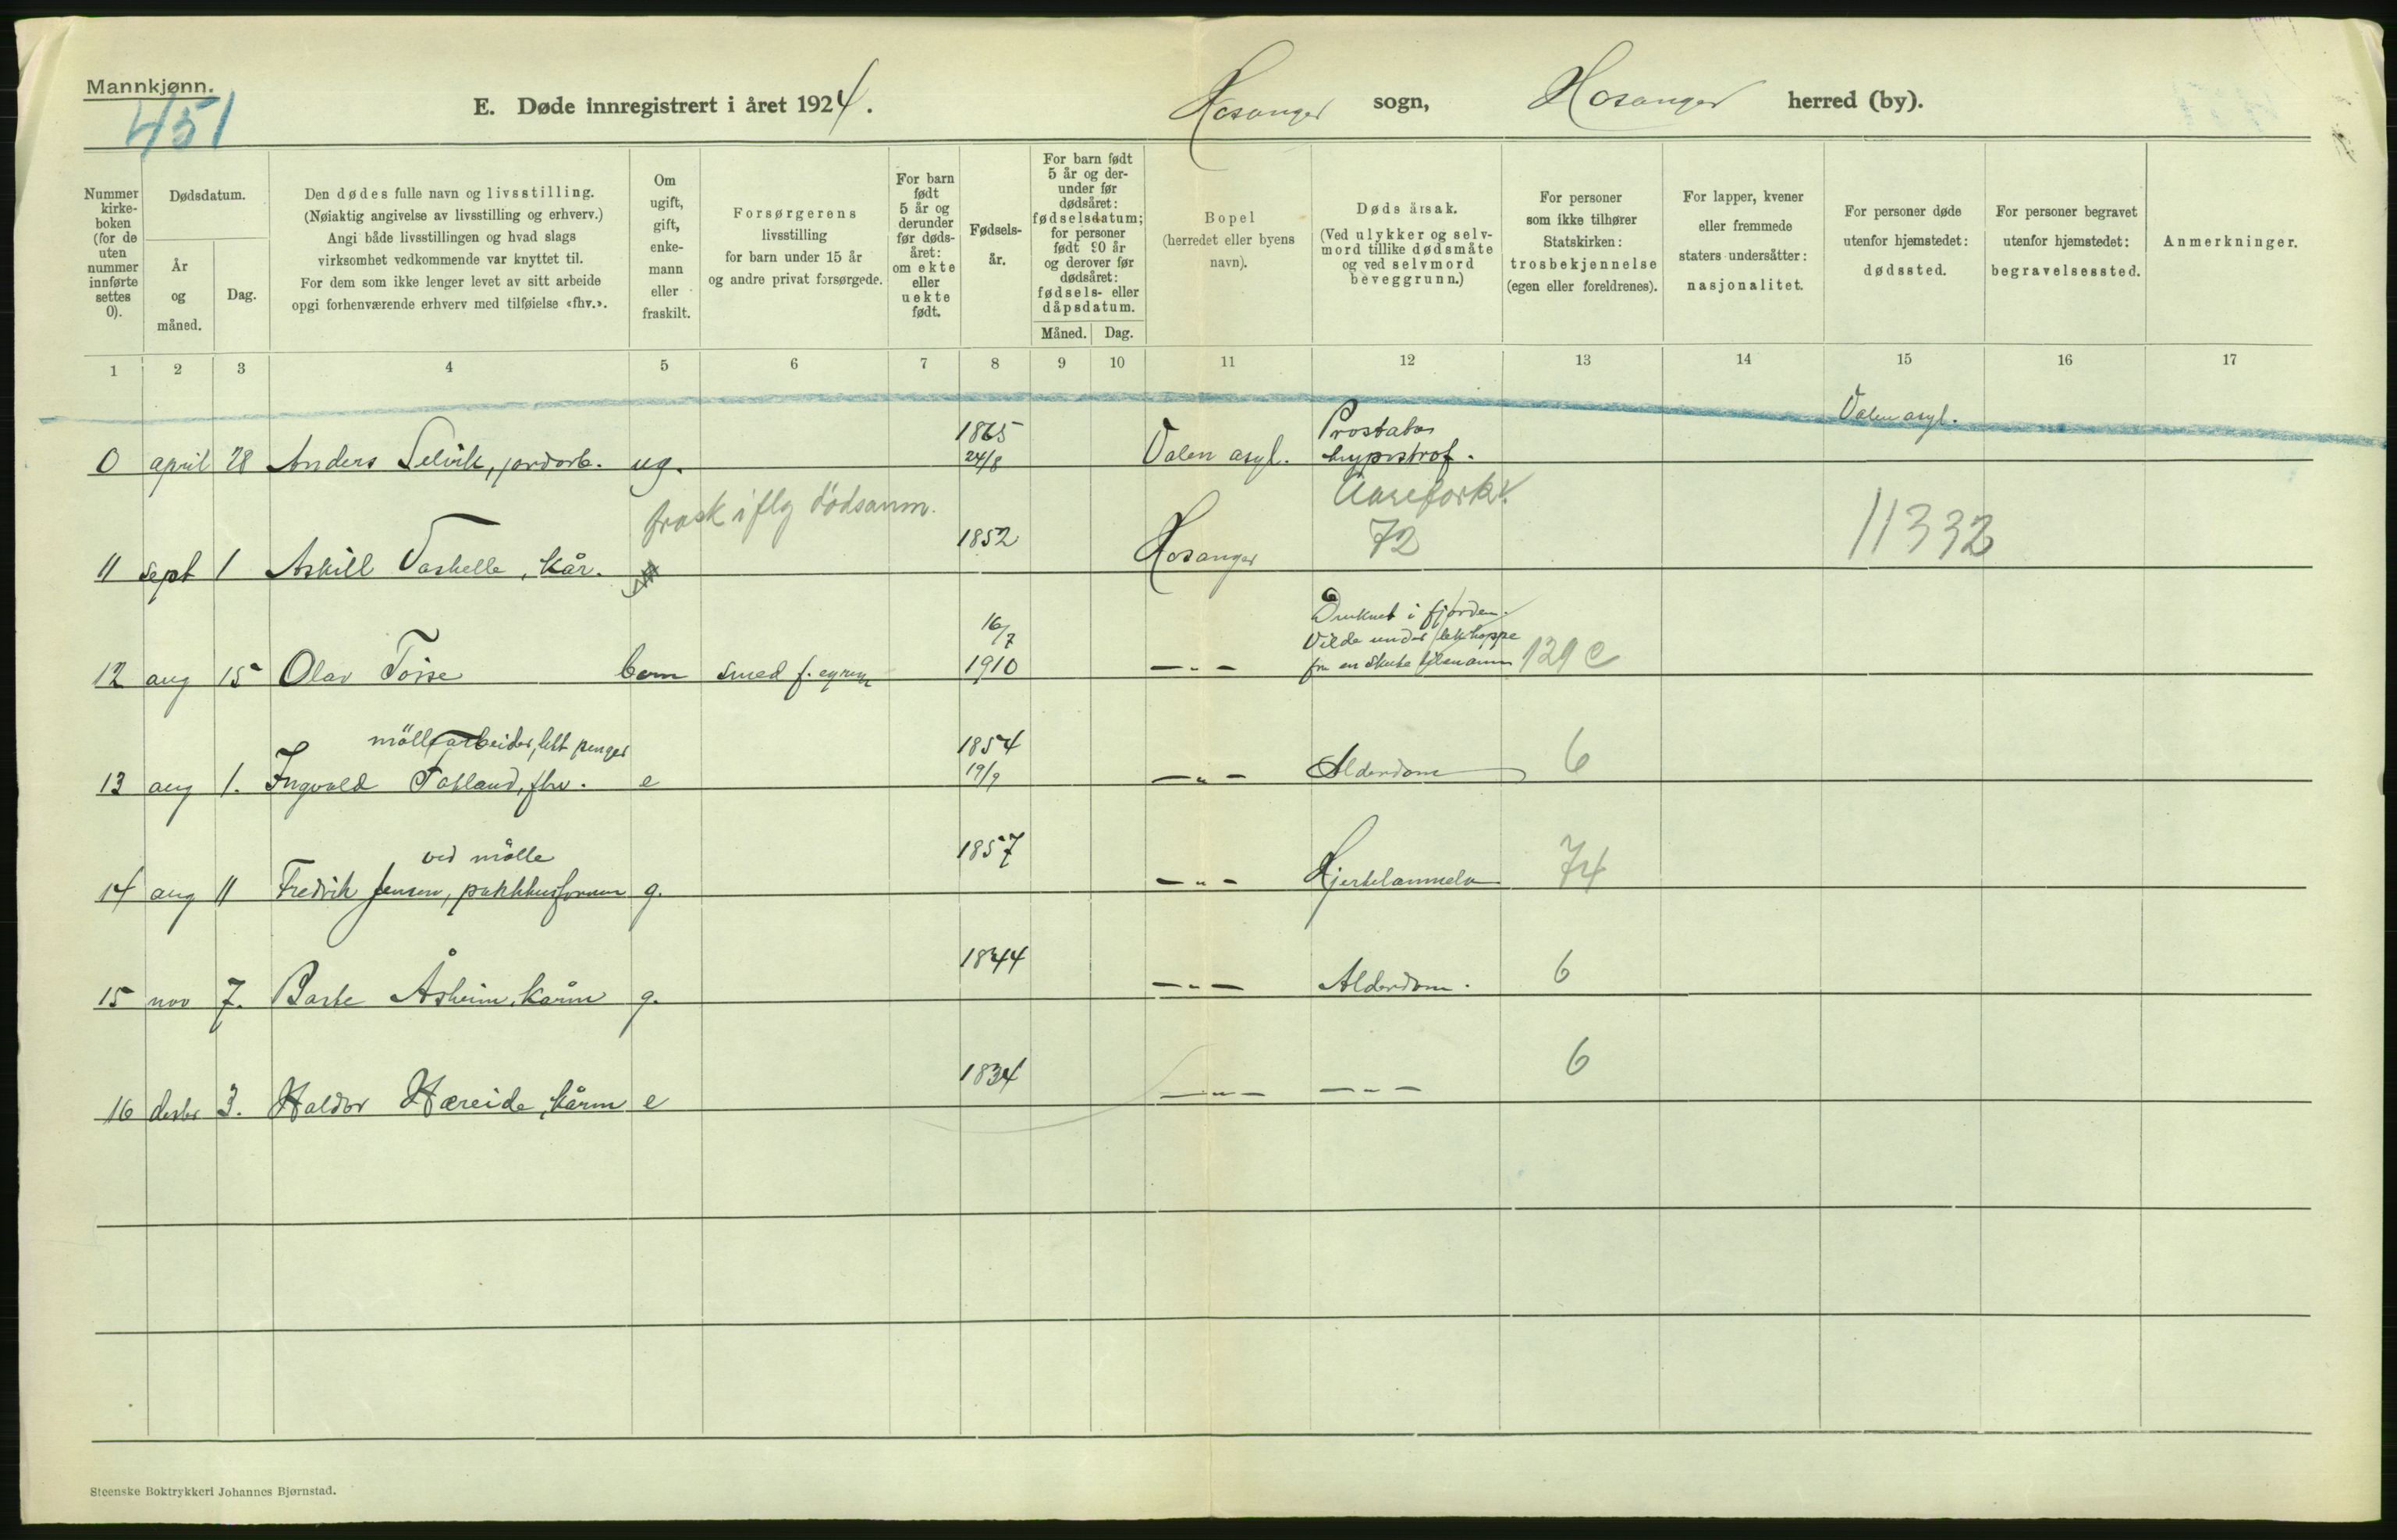 Mannkjønn.
451
E. Døde innregistrert i året 1924.
Hosanger sogn, Hosanger herred (by).
Nummer kirke-boken (for de uten nummer innførte settes 0).
Dødsdatum.
År og måned.
Dag.
Den dødes fulle navn og livsstilling.
(Nøiaktig angivelse av livsstilling og erhverv.)
Angi både livsstillingen og hvad slags
virksomhet vedkommende var knyttet til.
For dem som ikke lenger levet av sitt arbeide
opgi forhenværende erhverv med tilføielse «fhv.».
Om ugift, gift, enke-mann eller fraskilt.
Forsørgerens
livsstilling
for barn under 15 år
og andre privat forsørgede.
For barn født 5 år og derunder før døds-året: om ekte eller uekte født.
Fødsels-år.
For barn født 5 år og der-under før dødsåret: fødselsdatum; for personer født 90 år og derover før dødsåret: fødsels- eller dåpsdatum.
Måned. Dag.
Bopel
(herredet eller byens
navn).
Døds årsak.
(Ved ulykker og selv-
mord tillike dødsmåte
og ved selvmord
beveggrunn.)
For personer
som ikke tilhører
Statskirken:
trosbekjennelse
(egen eller foreldrenes).
For lapper, kvener
eller fremmede
staters undersåtter:
nasjonalitet.
For personer døde
utenfor hjemstedet:
dødssted.
For personer begravet
utenfor hjemstedet:
begravelsessted.
Anmerkninger.
1 2 3 4 5 6 7 8 9 10 11 12 13 14 15 16 17
Valen asyl.
1865 Prostata
0 april 28 Anders Selvik, jordarb. ug. 24/8 Valen asyl. hyperstrof.
frask iflg dödsanm.
1852 72 11332
11 sept 1 Askill Vaskelle, kår. Hosanger
16/7 Druknet i fjorden.
Vilde under lek hoppe
12 aug 15 Olav Toise barn smed f. egen 1910 — " — fra en skute 129 c
möllearbeider, litt penger 1854
13 aug 1. Ingvald Tolland, fhv. e 19/9 — " — Alderdom 6
ved mölle 1857
14 aug 11 Fredrik Jensen, pakkhusform g. — " — Hjertelammelse 74
1844
15 nov 7. Baste Åsheim, kårm g. — " — Alderdom. 6
1834 6
16 desbr 3. Haldor Hæreide, kårm e — " — — " —
Steenske Boktrykkeri Johannes Bjørnstad.